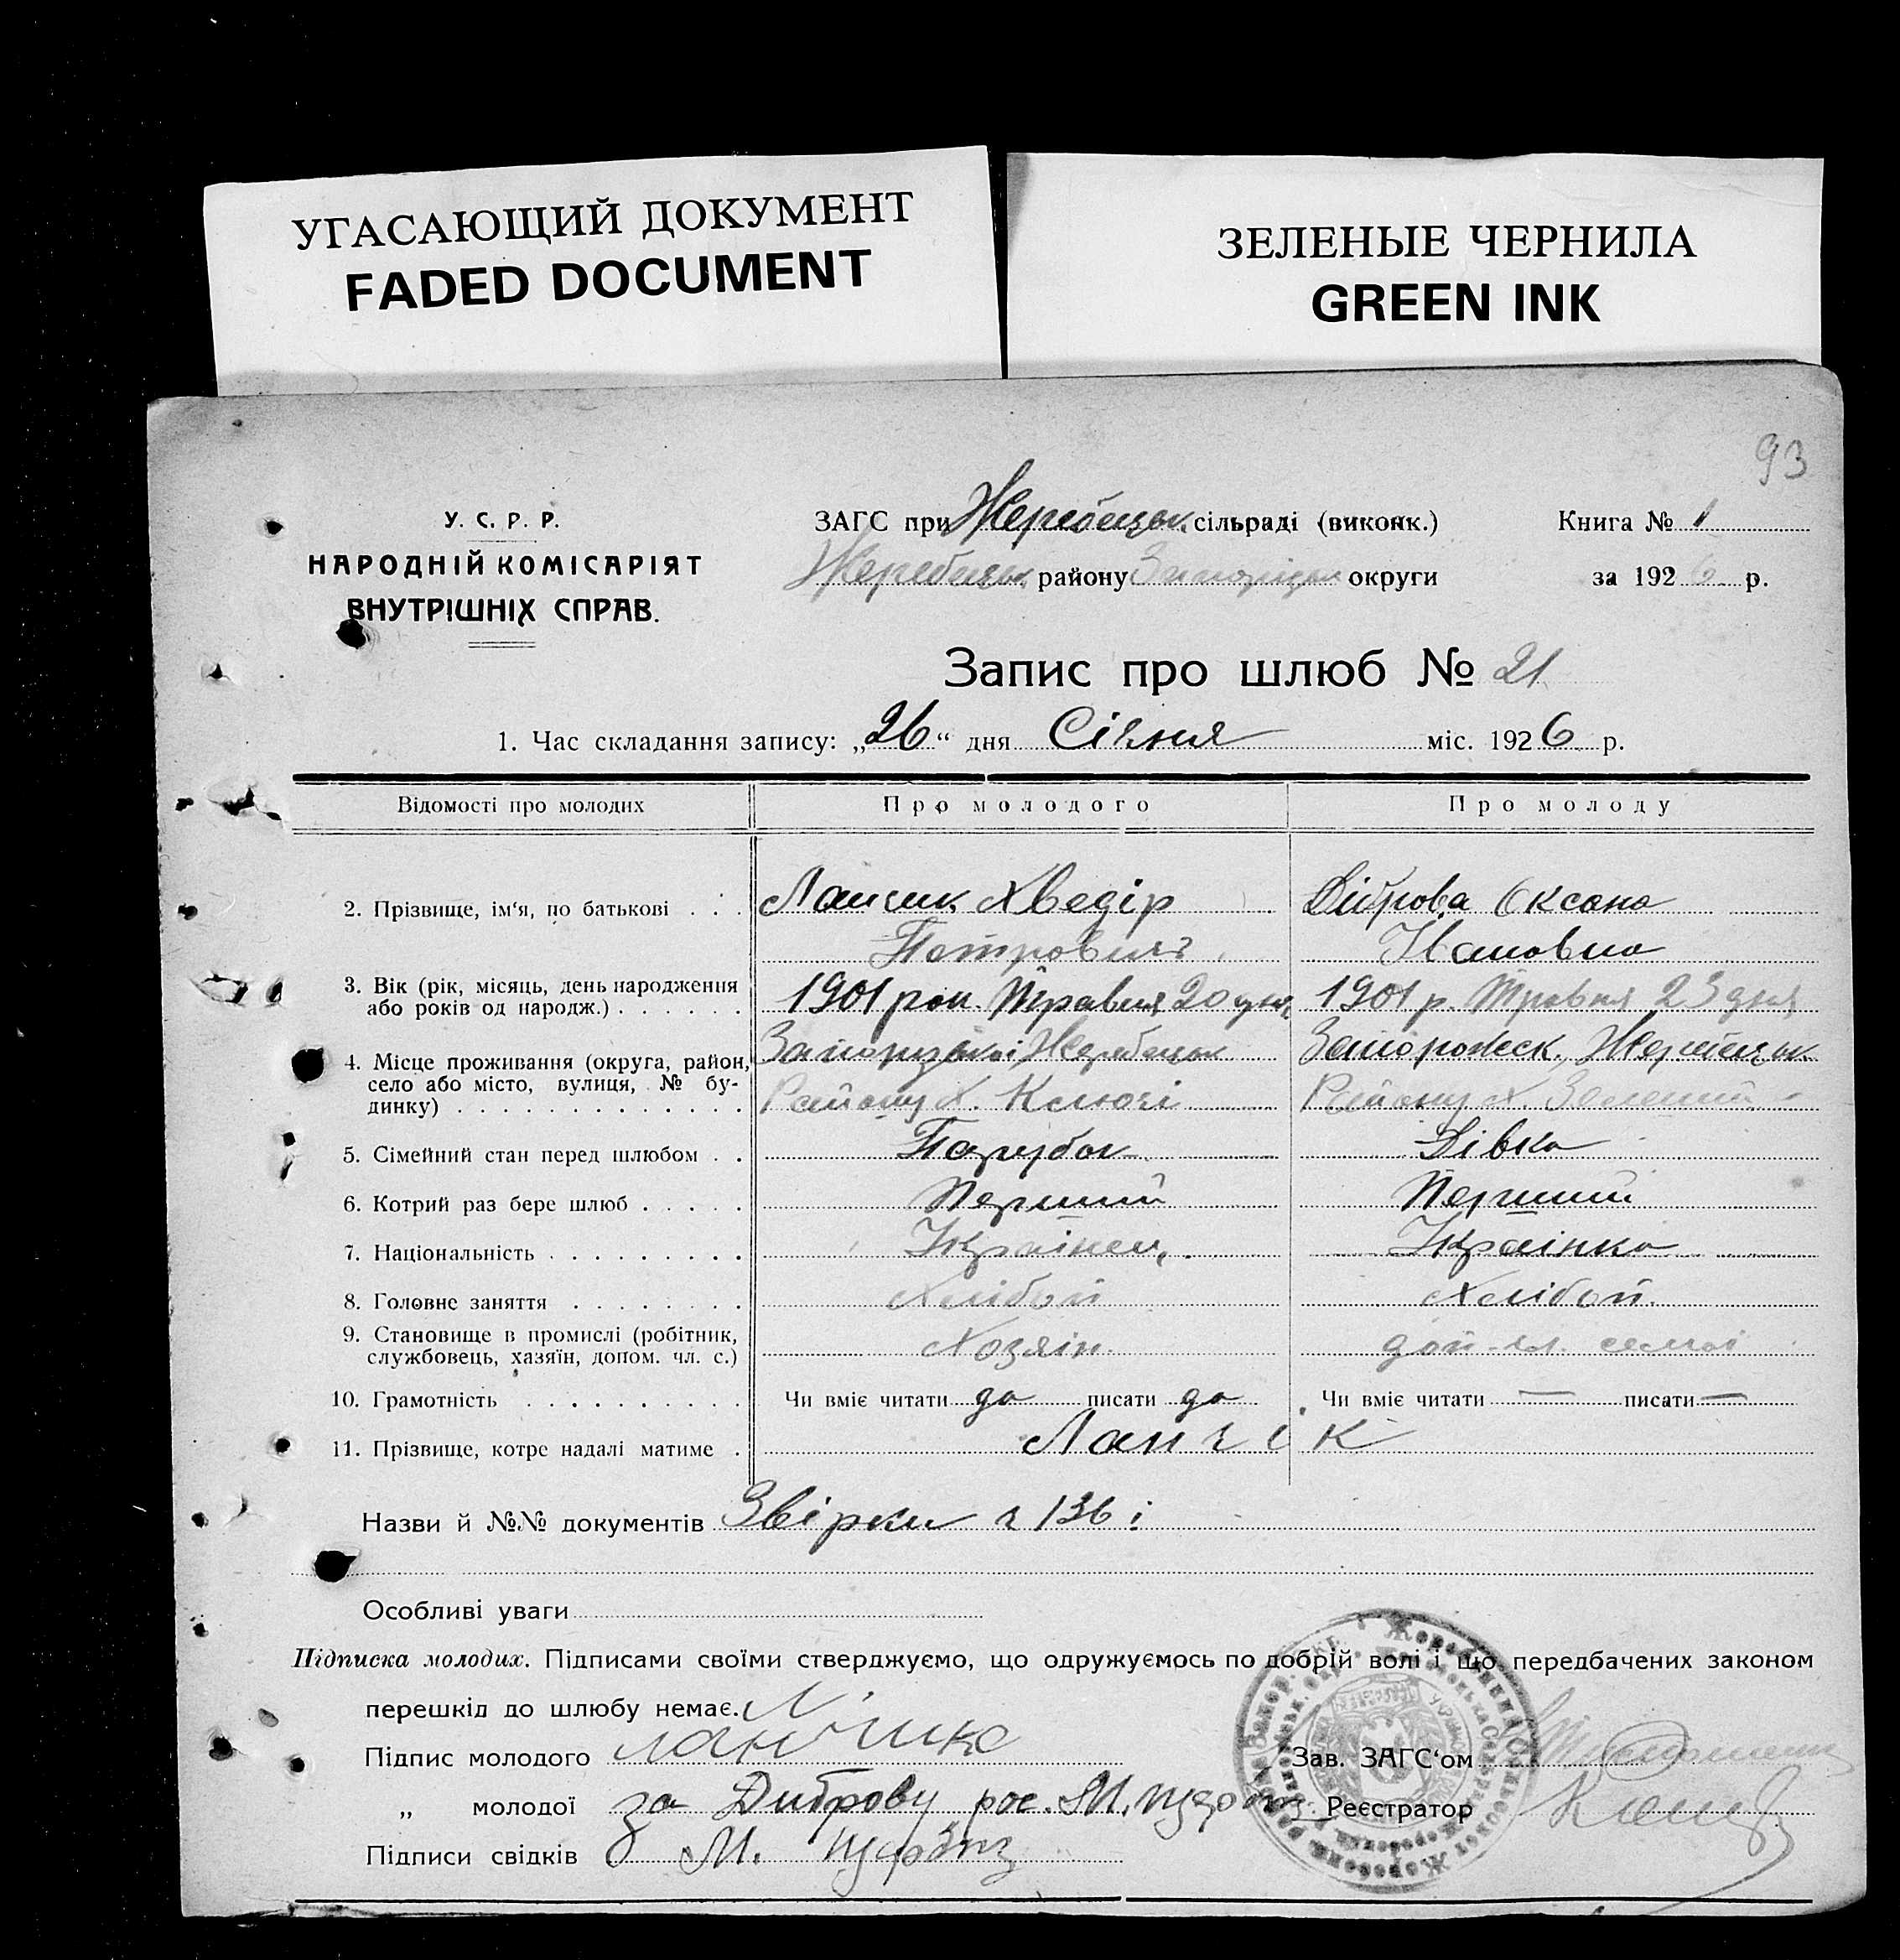 УГАСАЮЩИЙ ДОКУМЕНТ
FADED DOCUMENT
ЗЕЛЕНЫЕ ЧЕРНИЛА
GREEN INK
93
У. С. Р. Р.
НАРОДНІЙ КОМІСАРІЯТ
ВНУТРІШНІХ СПРАВ.
ЗАГС при Жеребецьк. сільраді (виконк.)
Книга № 1
Жеребецьк. району округи
за 1926 р.
Запис про шлюб № 21
1. Час складання запису: „26“ дня Січня міс. 1926 р.
Відомості про молодих
Про молодого
Про молоду
2. Прізвище, ім‘я, по батькові . . .
Ланчик Хведір
Діброва Оксана
Петровичъ
Івановна
3. Вік (рік, місяць, день народження
або років од народж.) . . . . . .
1901 рок. Травня 20 дня
1901 р. Травня 23 дня
4. Місце проживання (округа, район,
село або місто, вулиця, № бу-
динку) . . . . . . . . . . . . .
Жеребецьк
Запорожск., Жеребецьк
Району Х. Ключі
Району Х. Зелений
5. Сімейний стан перед шлюбом . .
Парубок
Дівка
6. Котрий раз бере шлюб . . . . .
Перший
Перший
7. Національність . . . . . . . . .
Українец,
Українка
8. Головне заняття . . . . . . . .
Хлібоп
Хлібоп.
9. Становище в промислі (робітник,
службовець, хазяїн, допом. чл. с.)
Хозяін.
доп. чл. семьі
10. Грамотність . . . . . . . . . .
Чи вміє читати да писати да
Чи вміє читати — писати —
11. Прізвище, котре надалі матиме .
Ланчік
Назви й №№ документів Звірки ч 136 і
Особливі уваги
Підписка молодих. Підписами своїми стверджуємо, що одружуємось по добрій волі і що передбачених законом
перешкід до шлюбу немає.
Підпис молодого
Зав. ЗАГС‘ом
„ молодої за Диброву рос. М.
Реєстратор
Підписи свідків М.